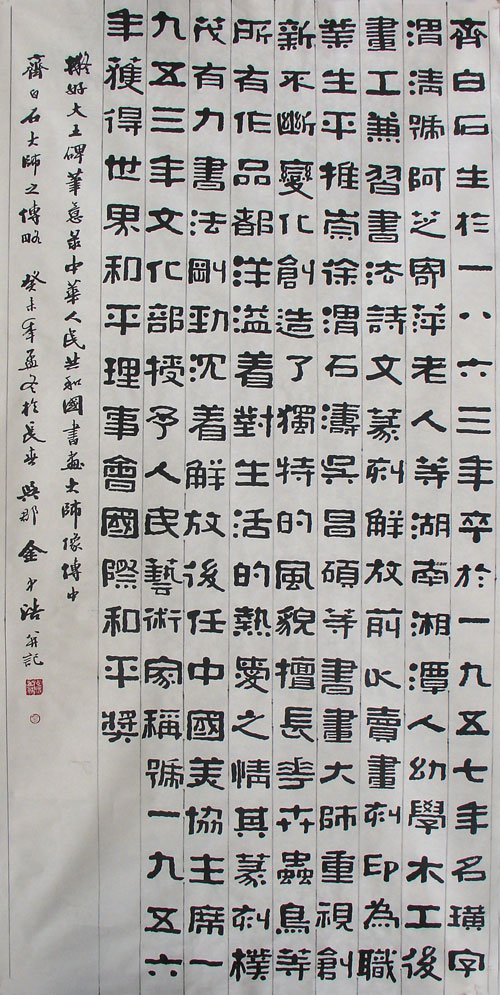 齊白石生於一八六三年卒於一九五七年名璜字
渭清號阿芝寄萍老人等湖南湘潭人幼學木工後
畫工兼習書法詩文篆刻解放前以賣畫刻印為職
業生平推崇徐渭石濤吳昌碩等書畫大師重視創
新不斷變化創造了獨特的風貌擅長花卉蟲鳥等
所有作品都洋溢着對生活的熱愛之情其篆刻樸
茂有力書法剛勁沉着解放後任中國美協主席一
九五三年文化部授予人民藝術家稱號一九五六
年獲得世界和平理事會國際和平獎
擬好大王碑筆意錄中華人民共和國書畫大師像傳中
齊白石大師之傳略 癸未年孟冬於長春 金中浩并記